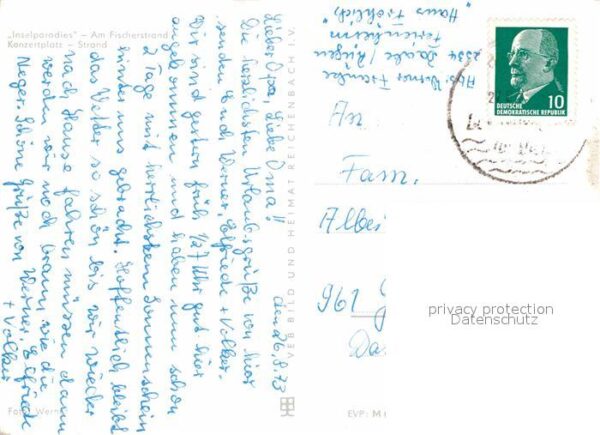 „Inselparadies“ – Am Fischerstrand
Konzertplatz – Strand
den 6.8.73
Lieber Opa, liebe Oma!!
Die herzlichsten Urlaubsgrüße von hier
senden Euch Werner, Elfriede + Volker.
Wir sind gestern früh 1/2 7 Uhr gut hier
angekommen und haben nun schon
2 Tage mit herrlichstem Sonnenschein
hinter uns gebracht. Hoffentlich bleibt
das Wetter so schön bis wir wieder
nach Hause fahren müssen dann
werden wir noch braun wie die
Neger. Schöne Grüße von Werner, Elfriede
+ Volker
Foto: Werner
VEB BILD UND HEIMAT REICHENBACH I. V.
EVP: M
Abs: Werner
2334
/ Rügen
Ferienheim
"Haus Fröhlich"
DEUTSCHE
DEMOKRATISCHE REPUBLIK
10
An
Fam.
961 G
privacy protection
Datenschutz